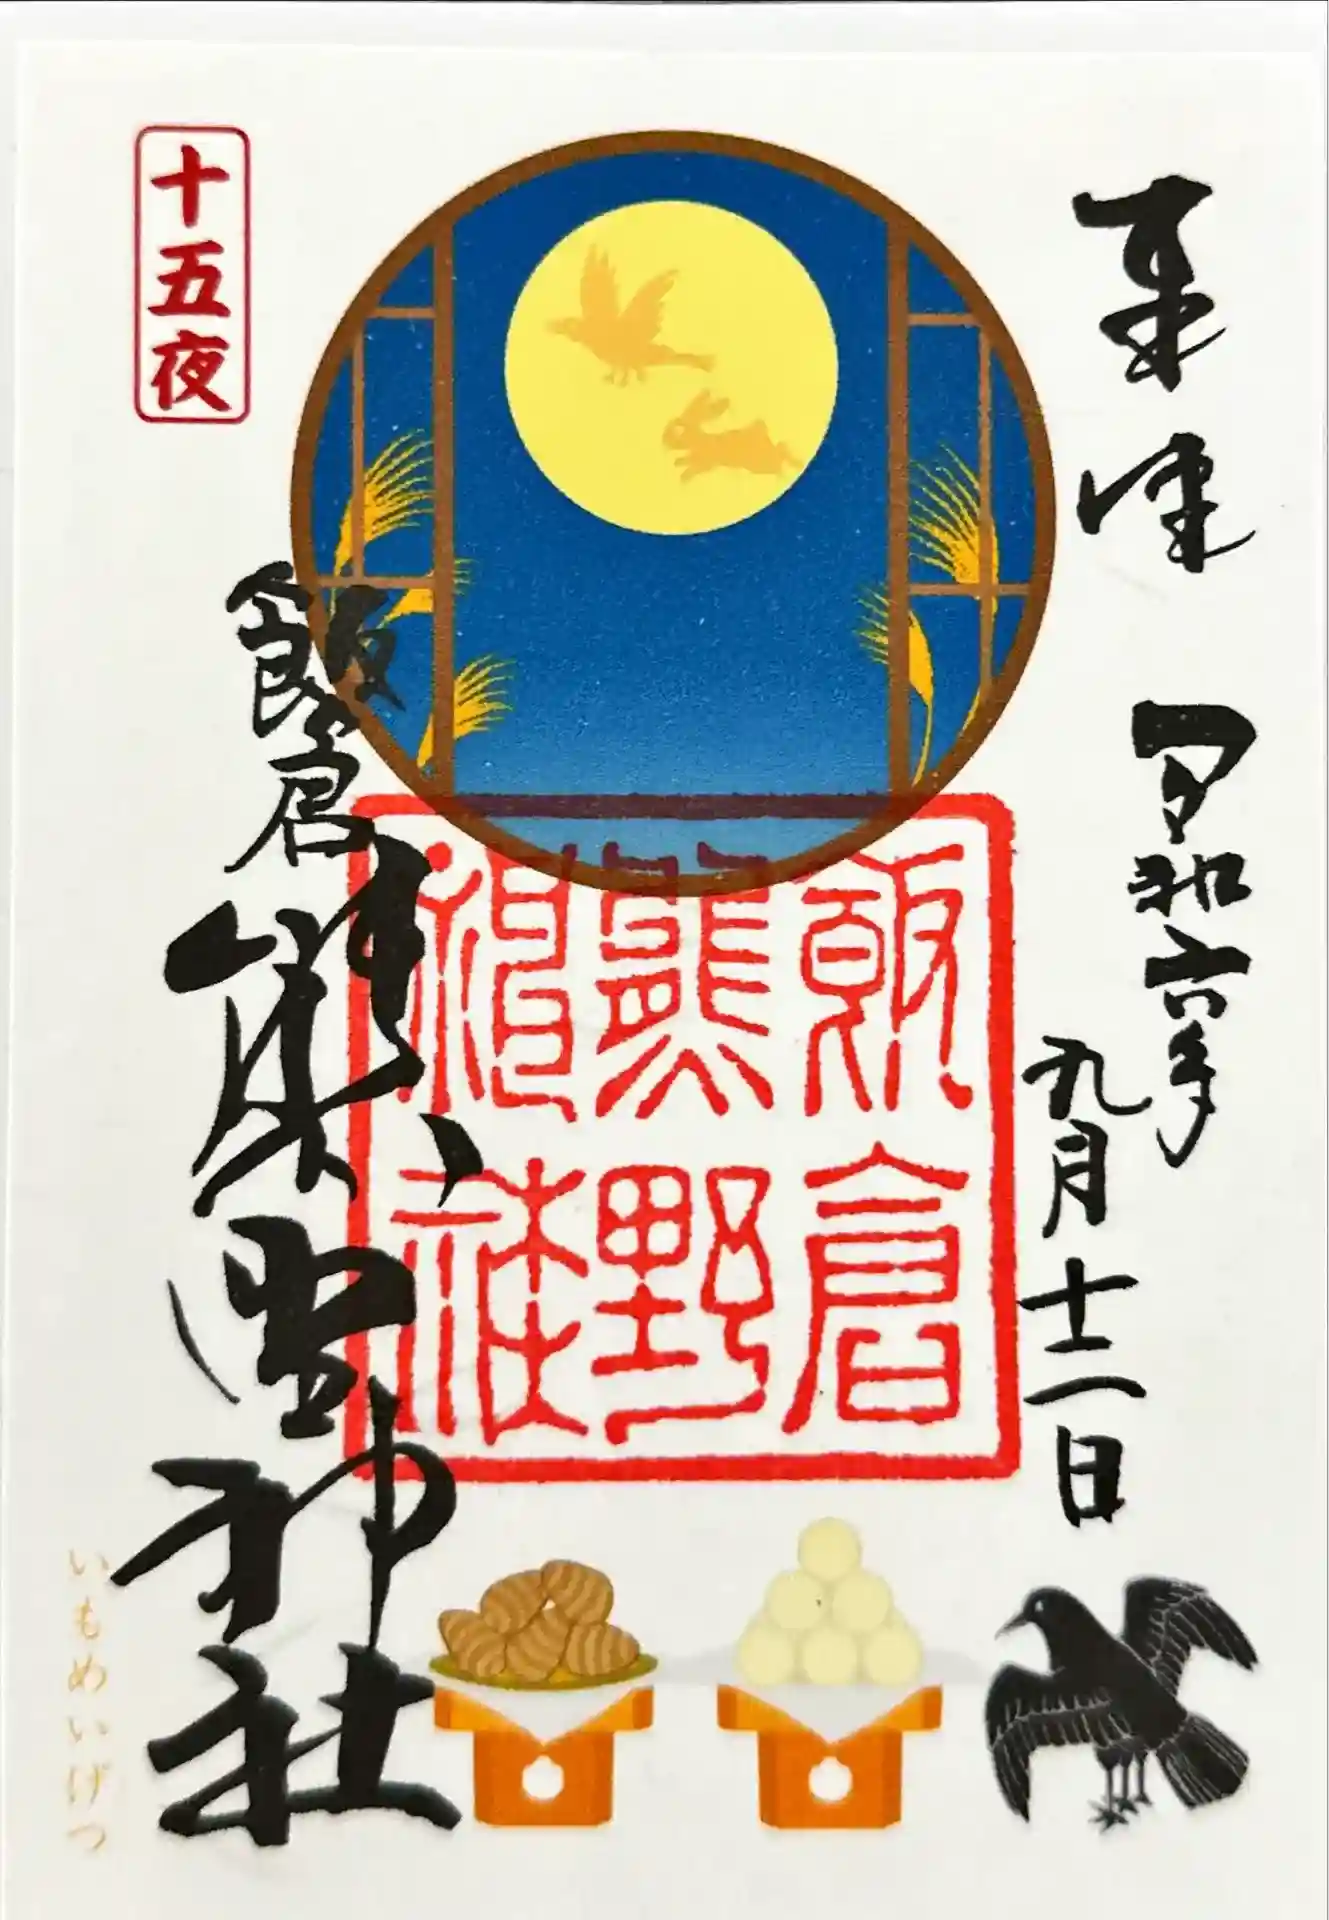 奉拝
令和六年
九月十二日
飯倉
熊野
神社
十五夜
飯倉熊野神社
いもめいげつ